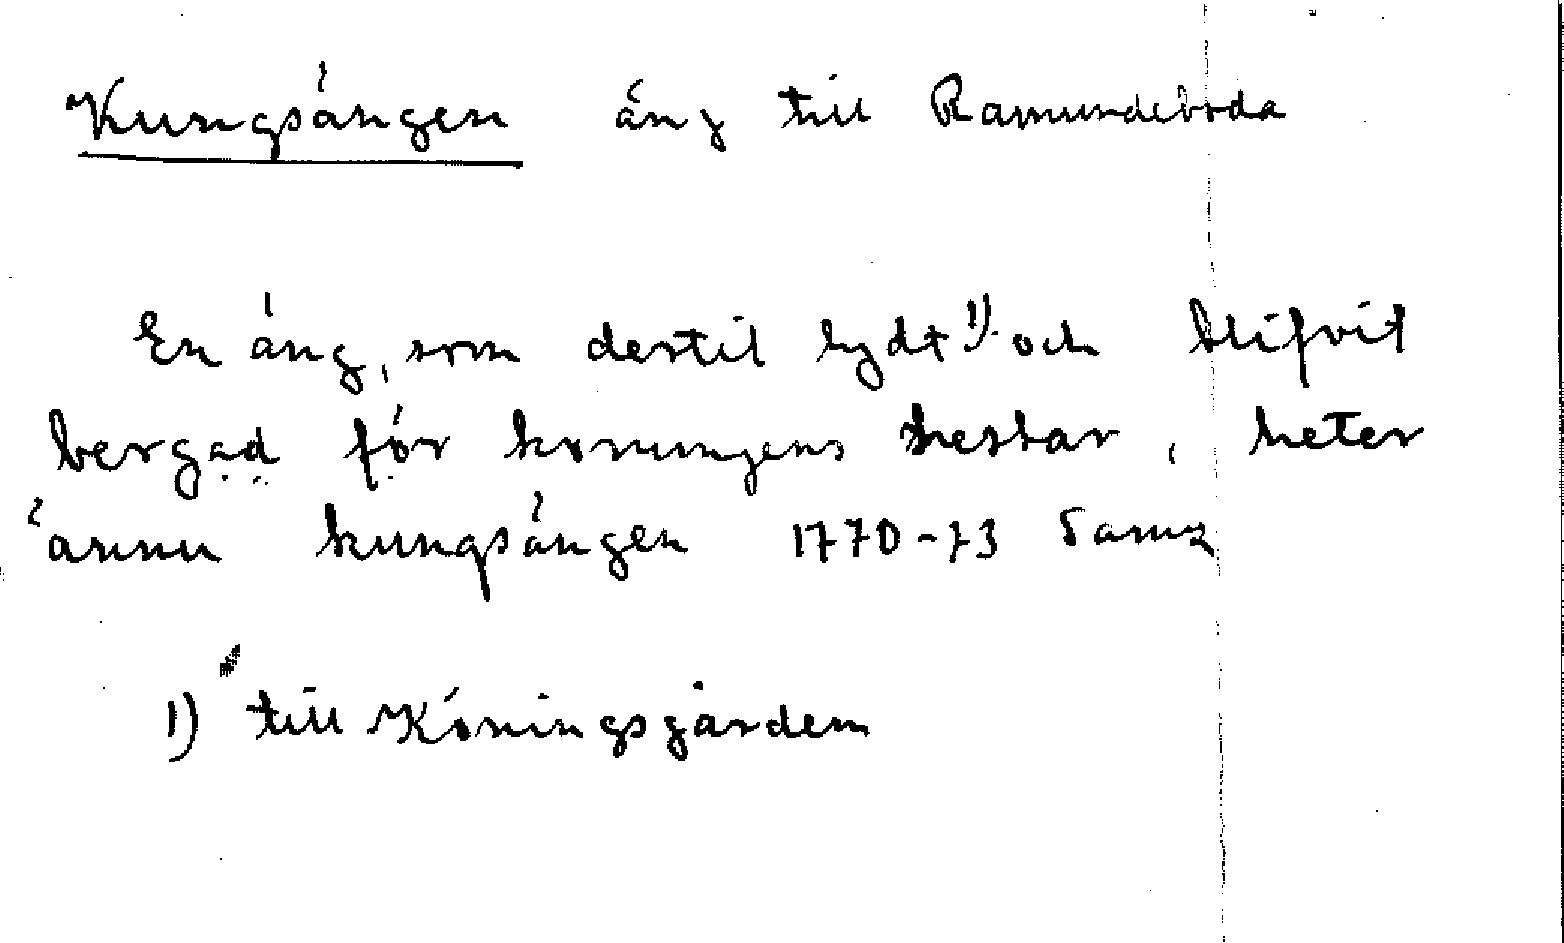 Kungsängen äng till Ramundeboda
En äng, som dertil lydt 1) och blifvit
bergad för konungens hestar, heter
ännu kungsängen 1770-73
1) till Köningsgården